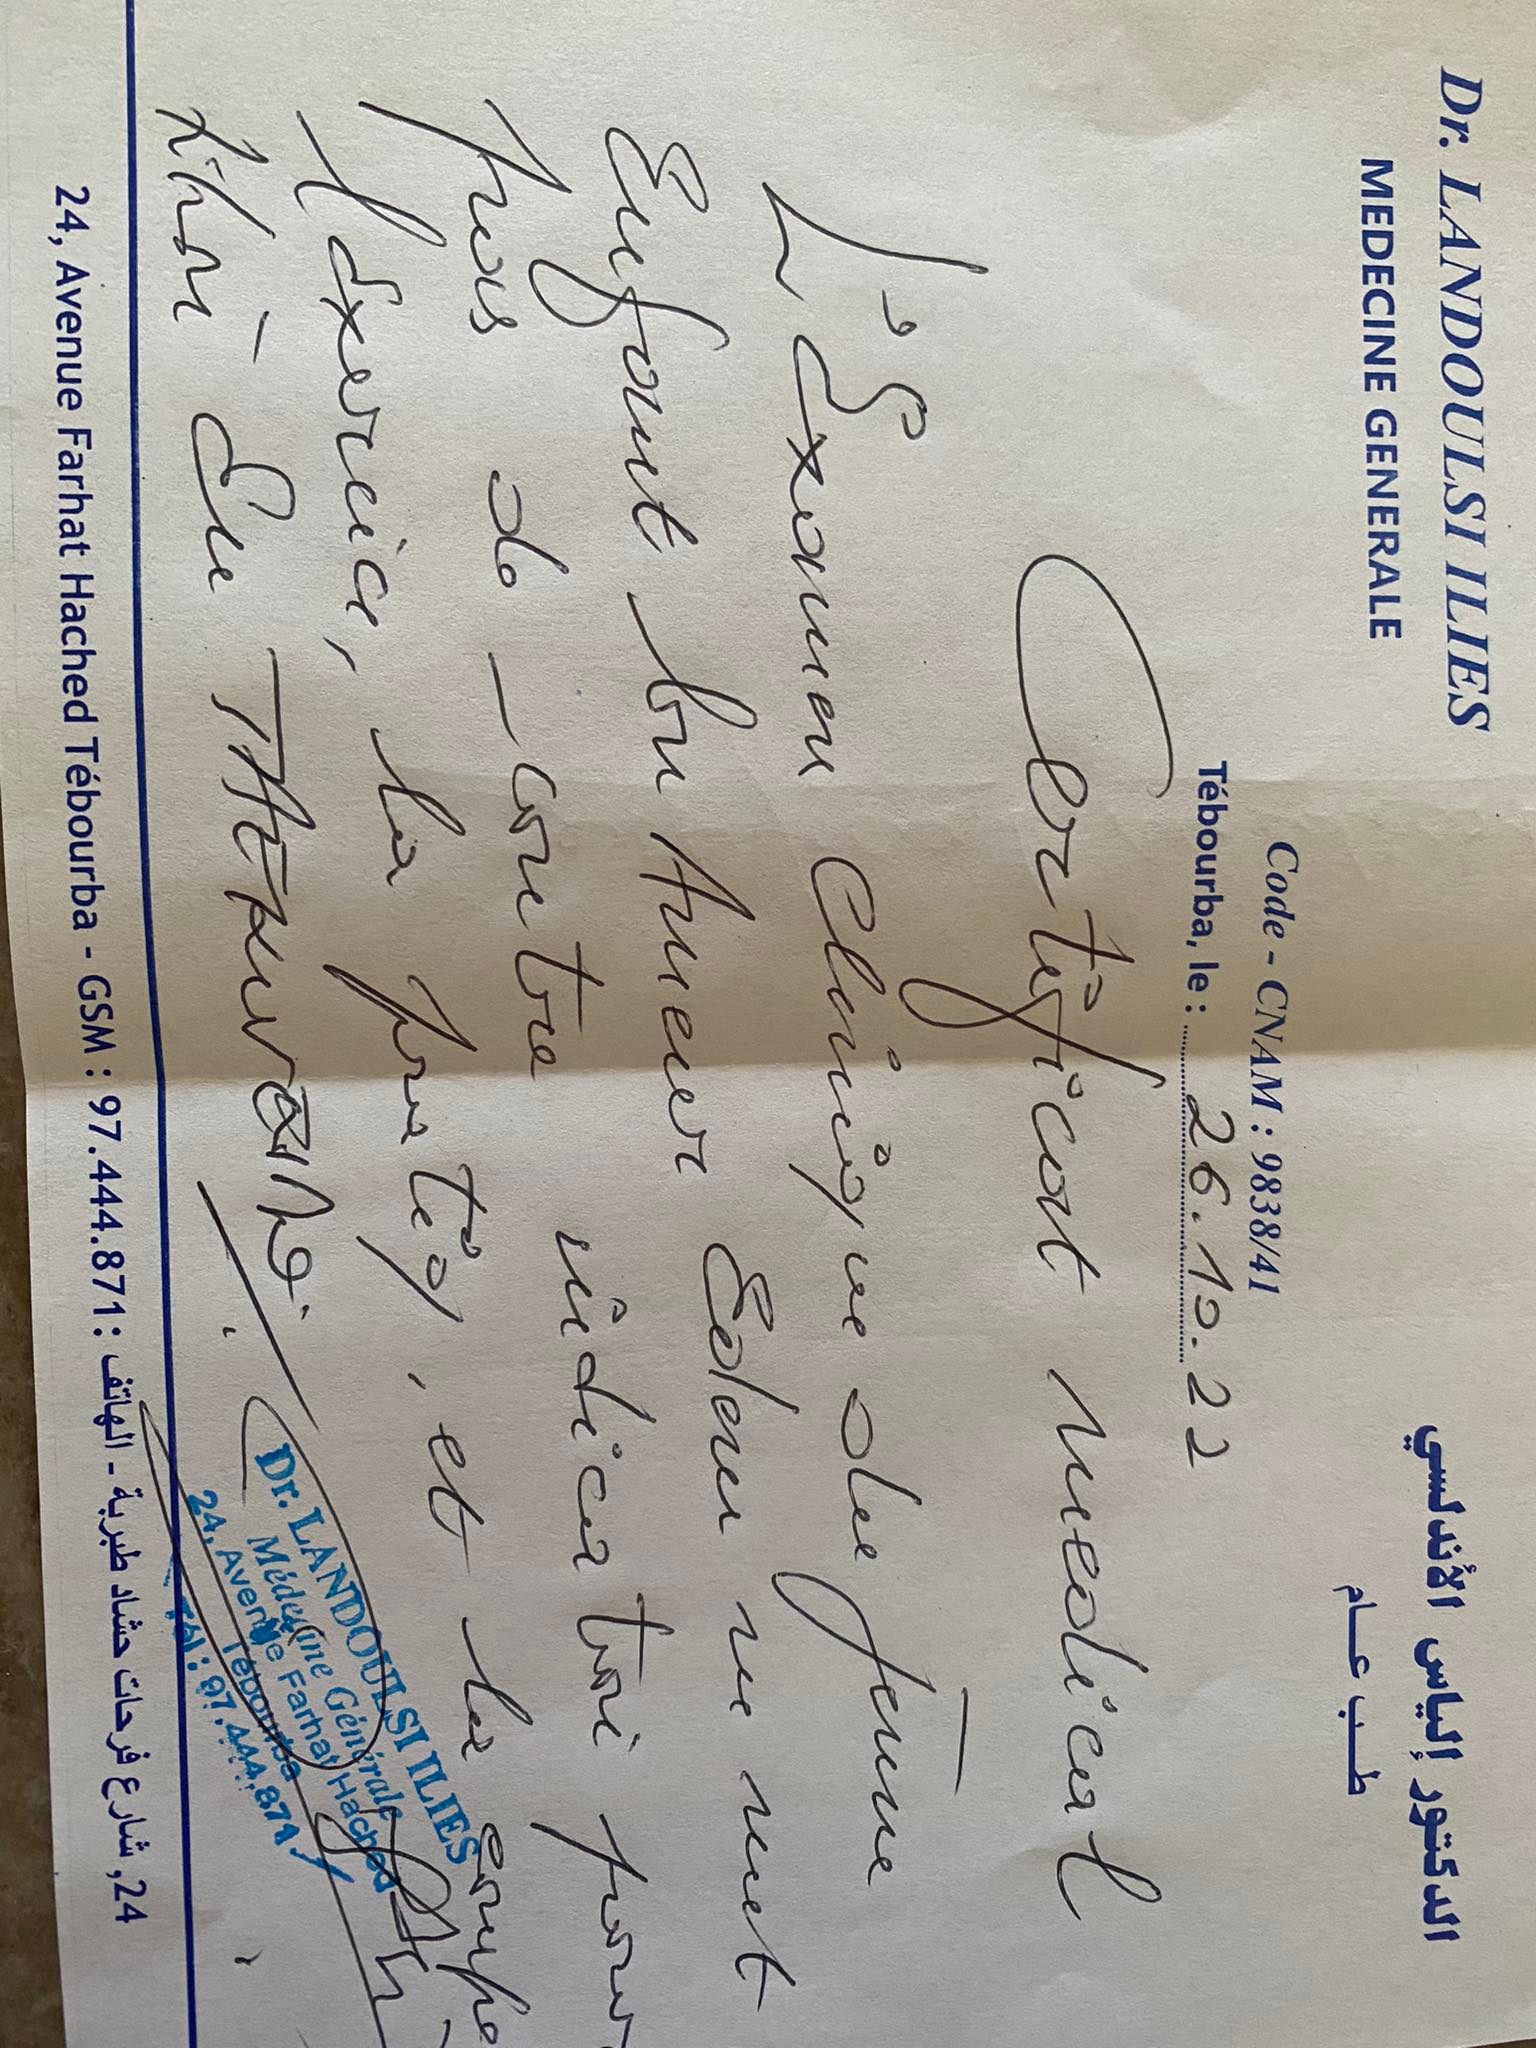 Dr. LANDOULSI ILIES
MEDECINE GENERALE
الدكتور إلياس الأندلسي
طب عام
Code - CNAM : 9838/41
Tébourba, le : 26.10.22
Certificat medical
L'Examen Clinique du Jeune
Enfant Ameur Eden ne met
pas de contre indication pour
l'Exercice, la pratiq, et la compe
Dr. LANDOULSI ILIES
Médecine Générale
24, Avenue Farhat Hached
Tébourba
Tél : 97.444.871
24, Avenue Farhat Hached Tébourba - GSM : 97.444.871 : الهاتف - 24, شارع فرحات حشاد طبربة